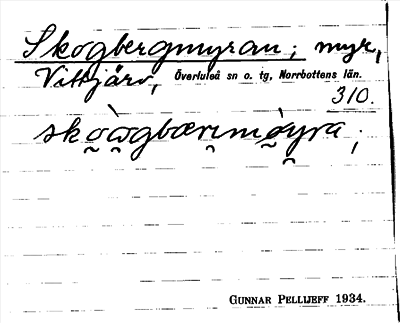 Skogbergmyran; myr,
Vittjärv, Överluleå sn o. tg, Norrbottens län.
310.
sko̯ò̯gbær̯ımø̯̀y̯ra;
GUNNAR PELLIJEFF 1934.